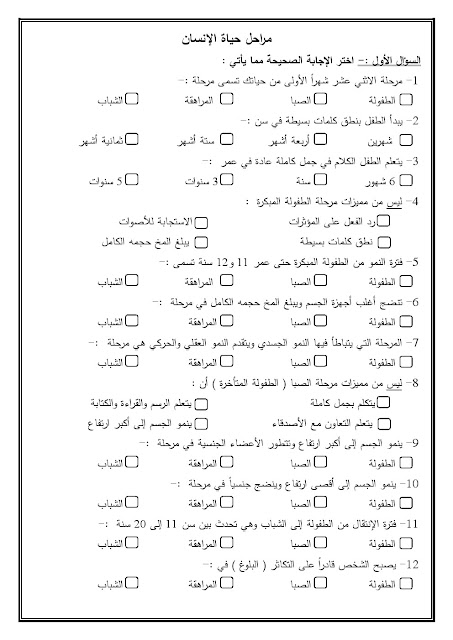 مراحل حياة الإنسان
السؤال الأول :- اختر الإجابة الصحيحة مما يأتي :
1- مرحلة الاثني عشر شهراً الأولى من حياتك تسمى مرحلة :-
الطفولة الصبا المراهقة الشباب
2- يبدأ الطفل بنطق كلمات بسيطة في سن :-
شهرين أربعة أشهر ستة أشهر ثمانية أشهر
3- يتعلم الطفل الكلام في جمل كاملة عادة في عمر :-
6 شهور سنة 3 سنوات 5 سنوات
4- ليس من مميزات مرحلة الطفولة المبكرة :
رد الفعل على المؤثرات الاستجابة للأصوات
نطق كلمات بسيطة يبلغ المخ حجمه الكامل
5- فترة النمو من الطفولة المبكرة حتى عمر 11 و 12 سنة تسمى :-
الطفولة الصبا المراهقة الشباب
6- تتضج أغلب أجهزة الجسم ويبلغ المخ حجمه الكامل في مرحلة :-
الطفولة الصبا المراهقة الشباب
7- المرحلة التي يتباطأ فيها النمو الجسدي ويتقدم النمو العقلي والحركي هي مرحلة :-
الطفولة الصبا المراهقة الشباب
8- ليس من مميزات مرحلة الصبا ( الطفولة المتأخرة ) أن :
يتكلم بجمل كاملة يتعلم الرسم والقراءة والكتابة
يتعلم التعاون مع الأصدقاء ينمو الجسم إلى أكبر ارتفاع
9- ينمو الجسم إلى أكبر ارتفاع وتتطور الأعضاء الجنسية في مرحلة :-
الطفولة الصبا المراهقة الشباب
10- ينمو الجسم إلى أقصى ارتفاع وينضج جنسياً في مرحلة :-
الطفولة الصبا المراهقة الشباب
11- فترة الإنتقال من الطفولة إلى الشباب وهي تحدث بين سن 11 إلى 20 سنة :-
الطفولة الصبا المراهقة الشباب
12- يصبح الشخص قادراً على التكاثر ( البلوغ ) في :-
الطفولة الصبا المراهقة الشباب